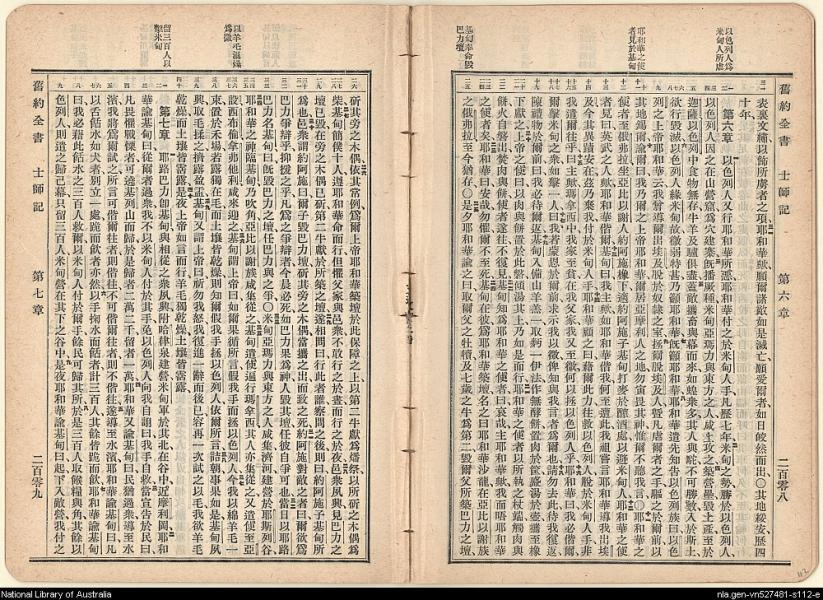 舊約全書 士師記 第六章 二百零八
以色列人爲米甸人所虐
耶和華之使者見於基甸
基甸奉命毀巴力壇
表裏文繡以歸所虜者之項耶和華歟願爾諸敵如是滅亡願愛爾者如日皎然而出○其地綏安歷四
十年
第六章 以色列人又行耶和華所惡耶和華付之於米甸人手凡歷七年米甸之勢勝於以色列
以色列人因之在山營窟爲穴建寨旣播厥種米甸亞瑪力與東方之人咸上攻之築營 毀土產至於
迦薩以色列中食物無存牛羊及驢俱盡蓋敵攜畜與幕而來如蝗衆多其人與駝不可勝數入於斯土
欲行毀滅以色列人緣米甸故微弱特甚乃籲耶和華旣籲耶和華耶和華遣先知告以色列族曰以色
列之上帝耶和華云我曾導爾出埃及脫於奴隸之室拯爾脫埃及人曁凡虐爾者之手驅之於爾前以
其地錫爾諭爾曰我乃爾之上帝耶和華爾居亞摩利人之地勿寅畏其神惟爾不聽我言○耶和華之
使者至俄弗拉坐亞比以謝人約阿施橡下適約阿施子基甸打麥於醡酒處以避米甸人耶和華使
者見曰英武之人耶和華偕爾基甸曰我主歟如耶和華偕我儕何爲遭此我祖曾言耶和華導我出埃
及今其異蹟安在乃棄我付於米甸人手耶和華顧之曰藉爾此力往救以色列人脫於米甸人手非
我遣爾往乎曰主歟我何以拯以色列人乎 耶和華曰我必偕爾
爾擊米甸之衆如擊一人曰我若蒙恩於爾前求示我以徵俾知與我言者爲爾也請勿去此待我復返
陳禮物於爾前曰我必待爾返基甸入備山羊羔一以麪一伊法作無酵餅置肉於筐盛湯於壺攜至橡
下獻之上帝之使曰以肉與餅置於此磐傾湯其上乃如是而行耶和華之使者以所執之杖鍴觸肉與
餅火自磐出焚肉與餅使者遂往不復見基甸知其爲耶和華之使者曰哀哉主耶和華歟我面覿耶和華
之使者矣耶和華曰安哉勿懼爾不至死基甸在彼爲耶和華築壇名之曰耶和華沙龍在亞比以謝族
之俄弗拉至今猶存○是夕耶和華諭之曰取爾父之牡犢及七歲之牛爲第二毀爾父所築巴力之壇
以羊毛濕燥爲徵
留三百人以擊米甸
斫其旁之木偶依其常例爲爾上帝耶和華築壇於此保障之上以第二牛獻爲燔祭以所斫之木偶爲
柴基甸簡僕十人遵耶和華命而行但懼父家與邑衆不敢行之於晝而行之於夜邑衆夙興見巴力之
壇已毀在旁之木偶已斫第二牛獻於所築之壇遂相問曰行此者誰察問之後則曰約阿施子基甸所
爲也邑衆謂約阿施曰爾子毀巴力壇斫其旁之木偶當攜之出而致之死約阿施對敵之者曰爾欲爲
巴力爭辯乎抑援之乎凡爲之爭辯者今晨必死如巴力果爲神人毀其壇任彼自爭可也當日以耶路
巴力名基甸曰旣毀巴力之壇任巴力與之爭○米甸亞瑪力與東方之人咸集濟河建營於耶斯列谷
耶和華之神臨基甸乃吹角亞比以謝族咸集從之基甸遣使遍行瑪拿西其人亦集從之又遣使至亞
設西布倫拿弗他利咸來迎之基甸謂上帝曰如爾果循所言假我手而拯以色列人今我以綿羊毛一
束置於禾場若露獨在毛而土壤皆乾燥則知爾假我手拯以色列人依爾所言詰朝事果如是基甸夙
興取毛揉之擠露盈盂基甸又謂上帝曰祈勿我怒我復進一辭而後已容再一次試之以毛我欲羊毛
乾燥而土壤皆霑露是夜上帝如言而行羊毛獨乾燥土壤皆霑露
第七章 耶路巴力卽基甸與相從之衆夙興附哈律泉建營米甸軍於其北在谷中近摩利岡耶和
華諭基甸曰從爾者過衆我不以米甸人付於其手免以色列人向我自詡曰我手自救當宣告於民曰
凡畏懼戰慄者可遶基列山而歸於是歸者二萬二千留者一萬耶和華又諭基甸曰民猶過衆導至水
濱我將爲爾試之所言可偕爾往者則偕往不可偕爾往者則不偕往遂導至水濱耶和華諭基甸曰凡
以舌餂水如犬者別立一處跪而飮者亦然以手掬水而餂者計三百人其餘皆跪而飮耶和華諭基甸
曰我必藉此餂水之三百人救爾以米甸人付於爾手餘民可歸其所於是三百人取餱糧與角其餘以
色列人則遣之歸己幕只留三百人米甸營在其下之谷中是夜耶和華諭基甸曰起下入敵營我付之
舊約全書 士師記 第七章 二百零九
National Library of Australia
nla.gen-vn527481-s112-e